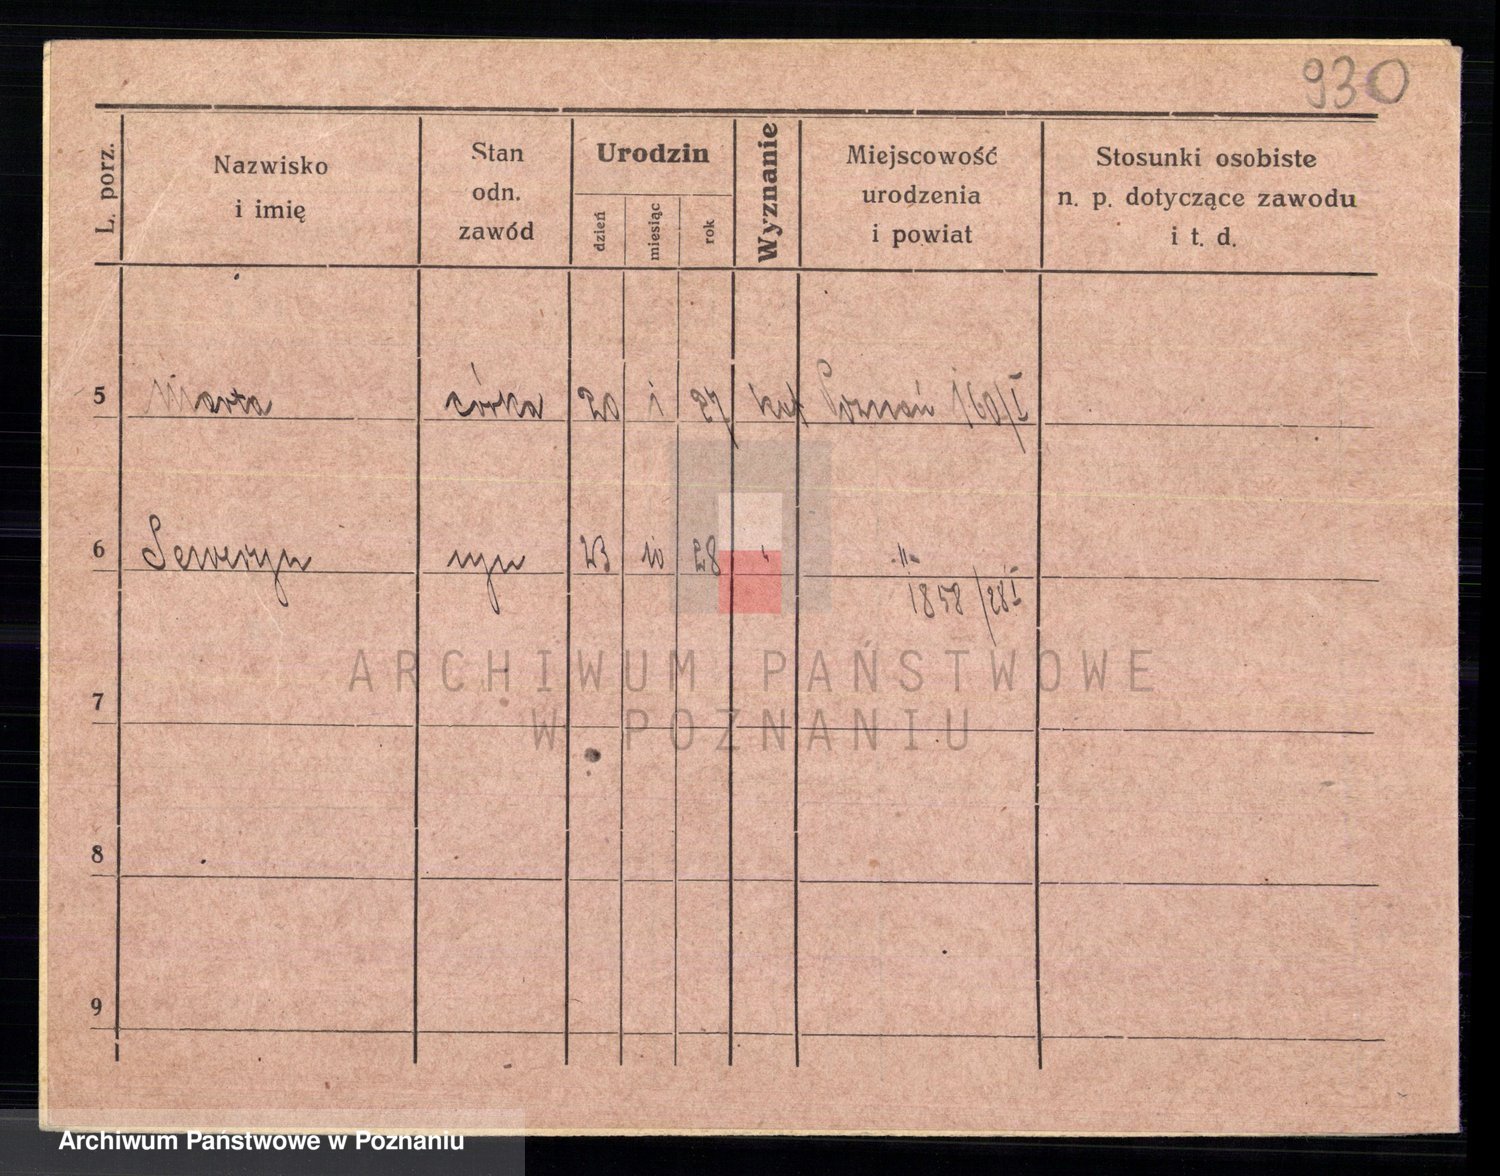 930
L. porz.
Nazwisko
i imię
Stan
odn.
zawód
Urodzin
dzień
miesiąc
rok
Wyznanie
Miejscowość
urodzenia
i powiat
Stosunki osobiste
n. p. dotyczące zawodu
i t. d.
5 Marta córka 20 1 27 Poznań 160/I
6 Seweryn syn 23 10 28 -"-
1858/28 I
ARCHIWUM PAŃSTWOWE
W POZNANIU
7
8
9
Archiwum Państwowe w Poznaniu